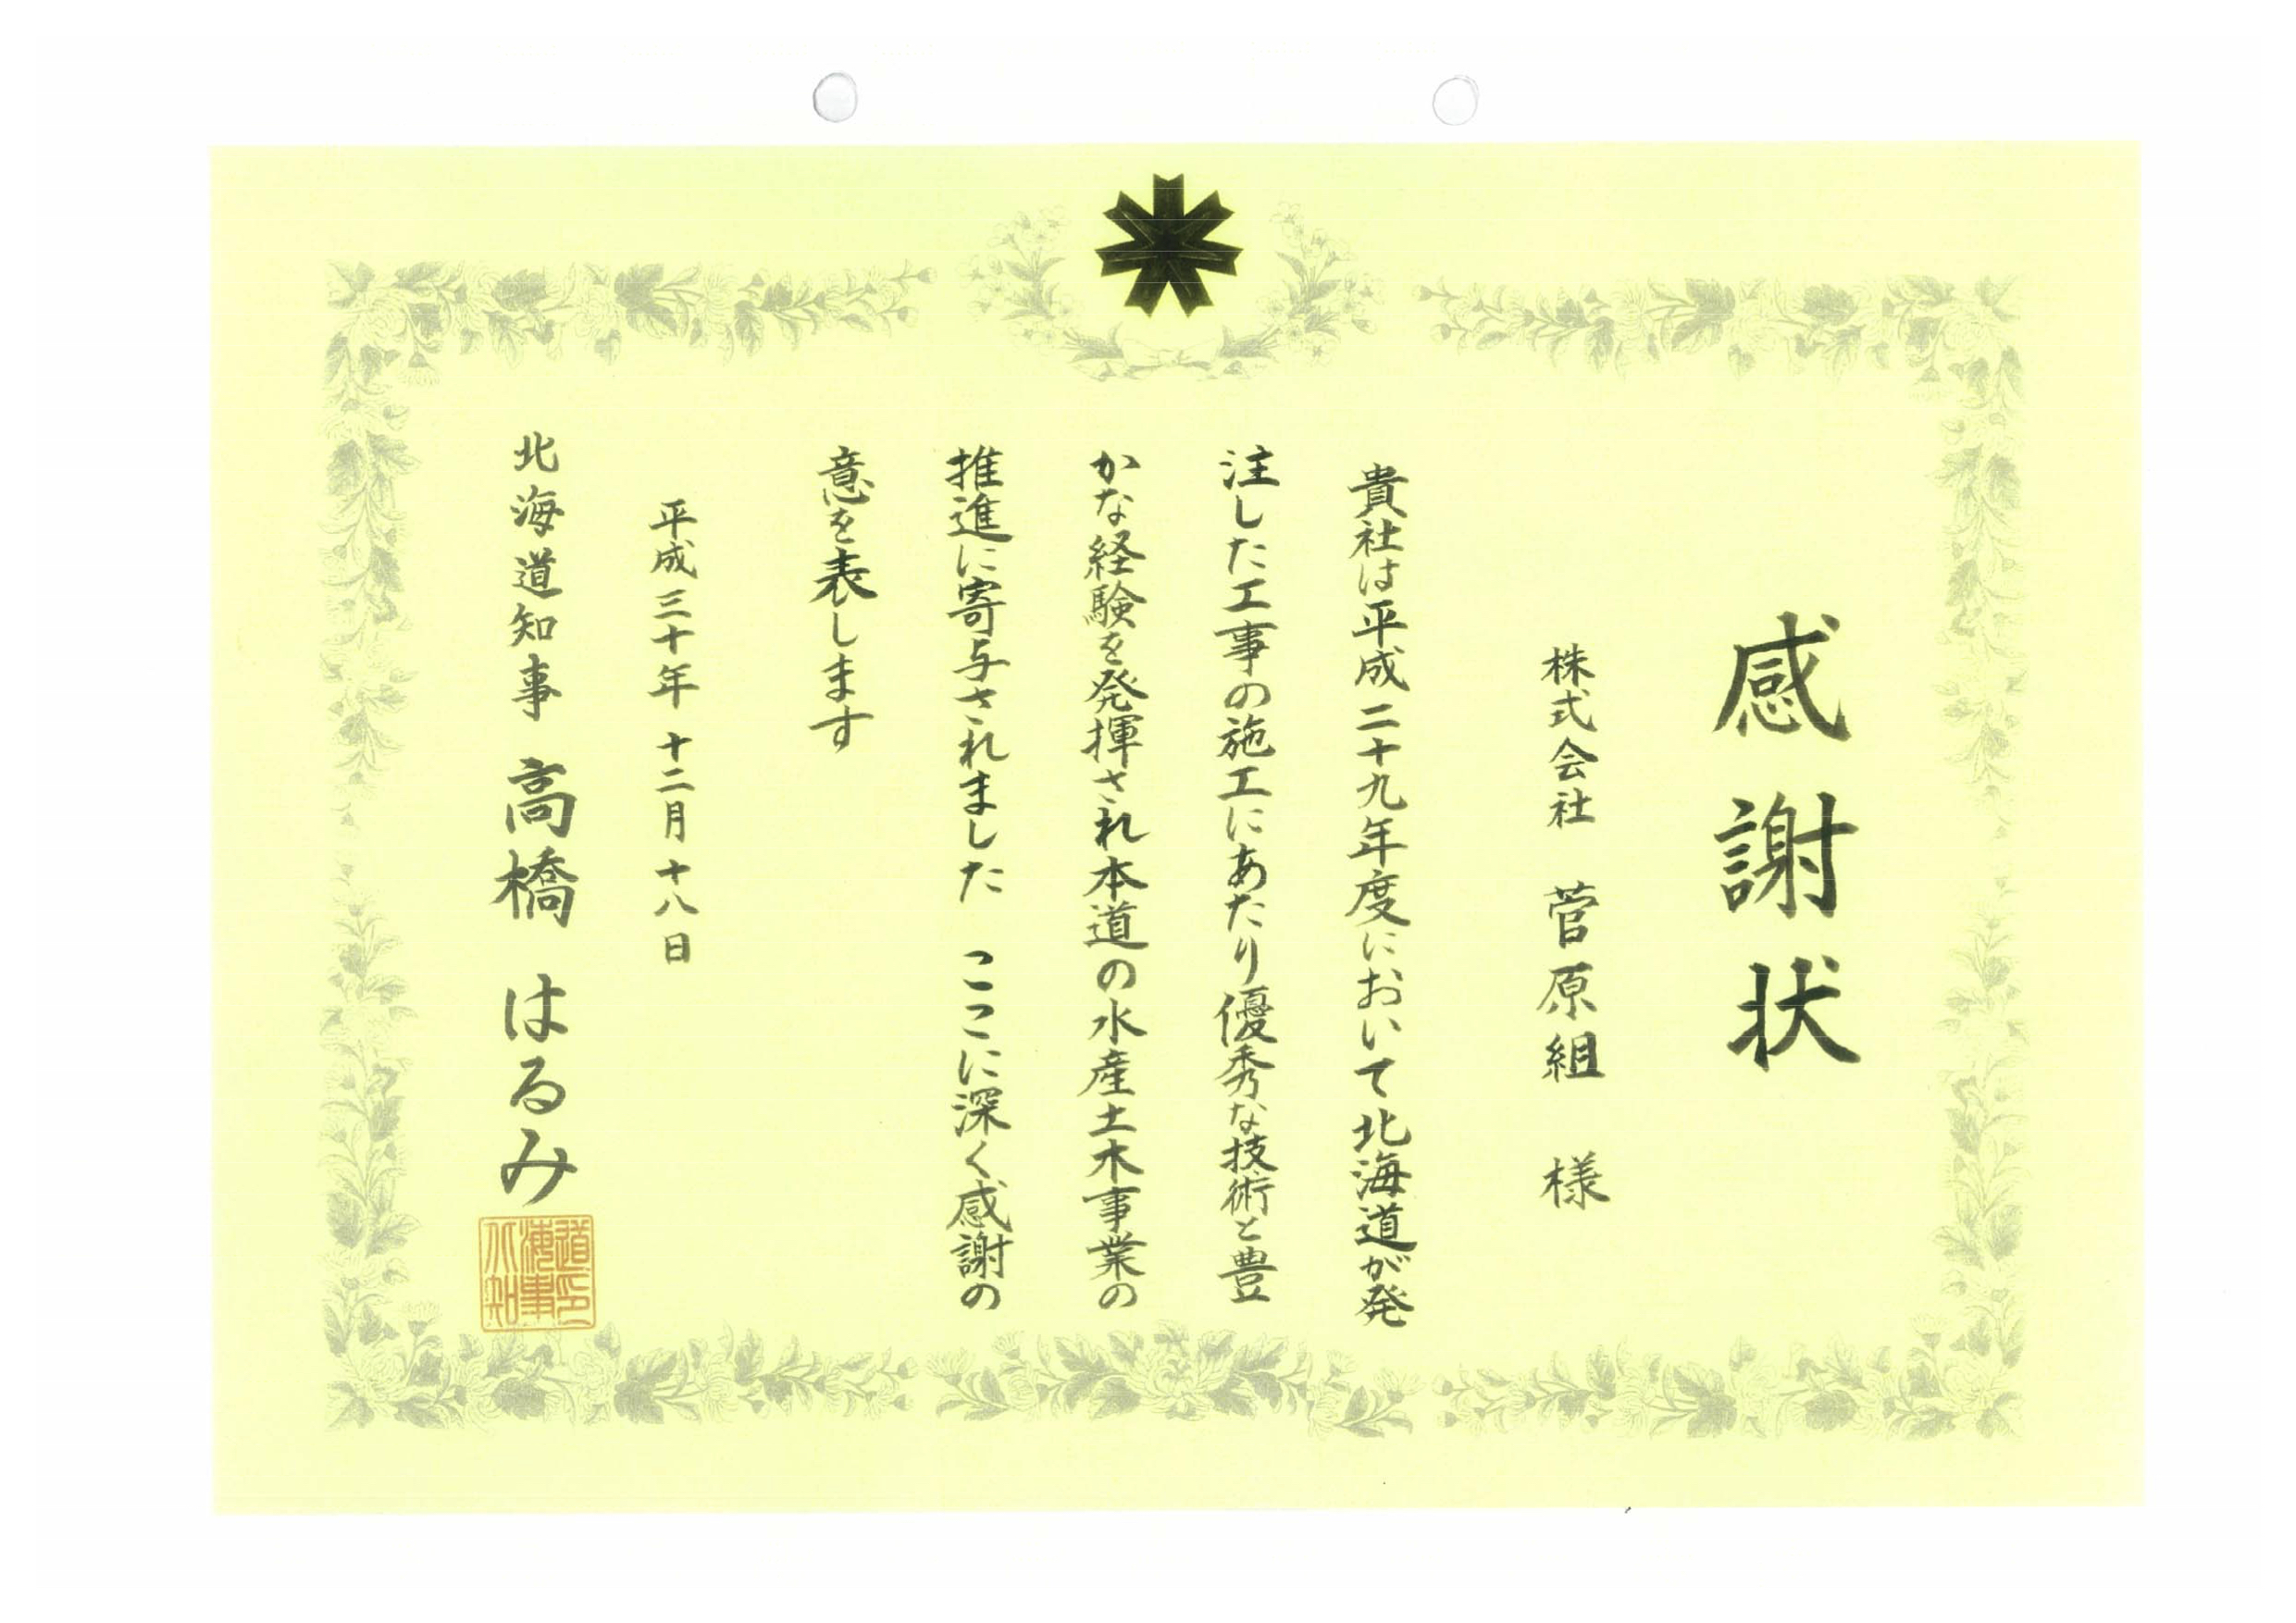 感謝状
株式会社 菅原組 様
貴社は平成二十九年度において北海道が発
注した工事の施工にあたり優秀な技術と豊
かな経験を発揮され本道の水産土木事業の
推進に寄与されました ここに深く感謝の
意を表します
平成三十年十二月十八日
北海道知事 高橋 はるみ
道印
海事
北知